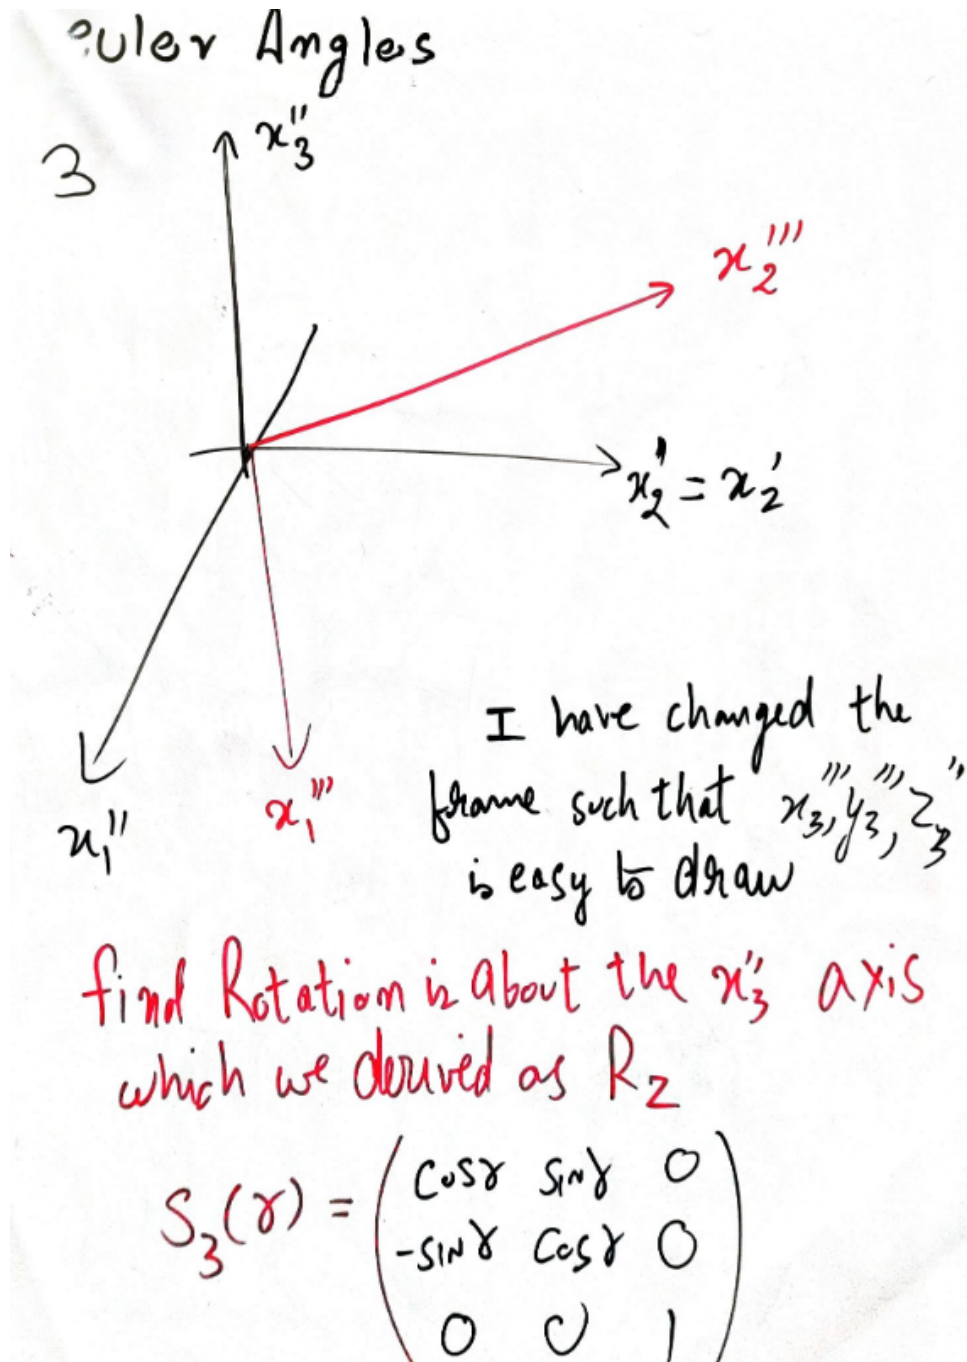 Euler Angles
3
x₃''
x₂'''
x₂'' = x₂'
x₁''
x₁'''
I have changed the
frame such that x₃''', y₃''', z₃''
is easy to draw
find Rotation is about the x₃'' axis
which we derived as R_z
S₃(γ) = ( cosγ sinγ 0
-sinγ cosγ 0
0 0 1 )